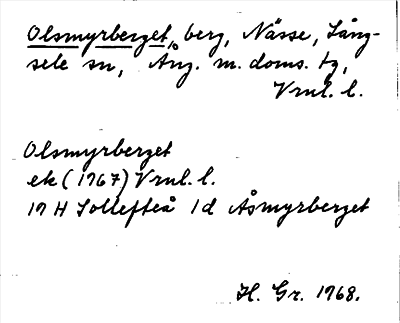 Olsmyrberget, berg, Nässe, Lång-
sele sn, Ång. m. doms. tg,
Vrnl. l.
Olsmyrberget
ek (1967) Vrnl. l.
19 H Sollefteå 1d Åsmyrberget
H. Gr. 1968.